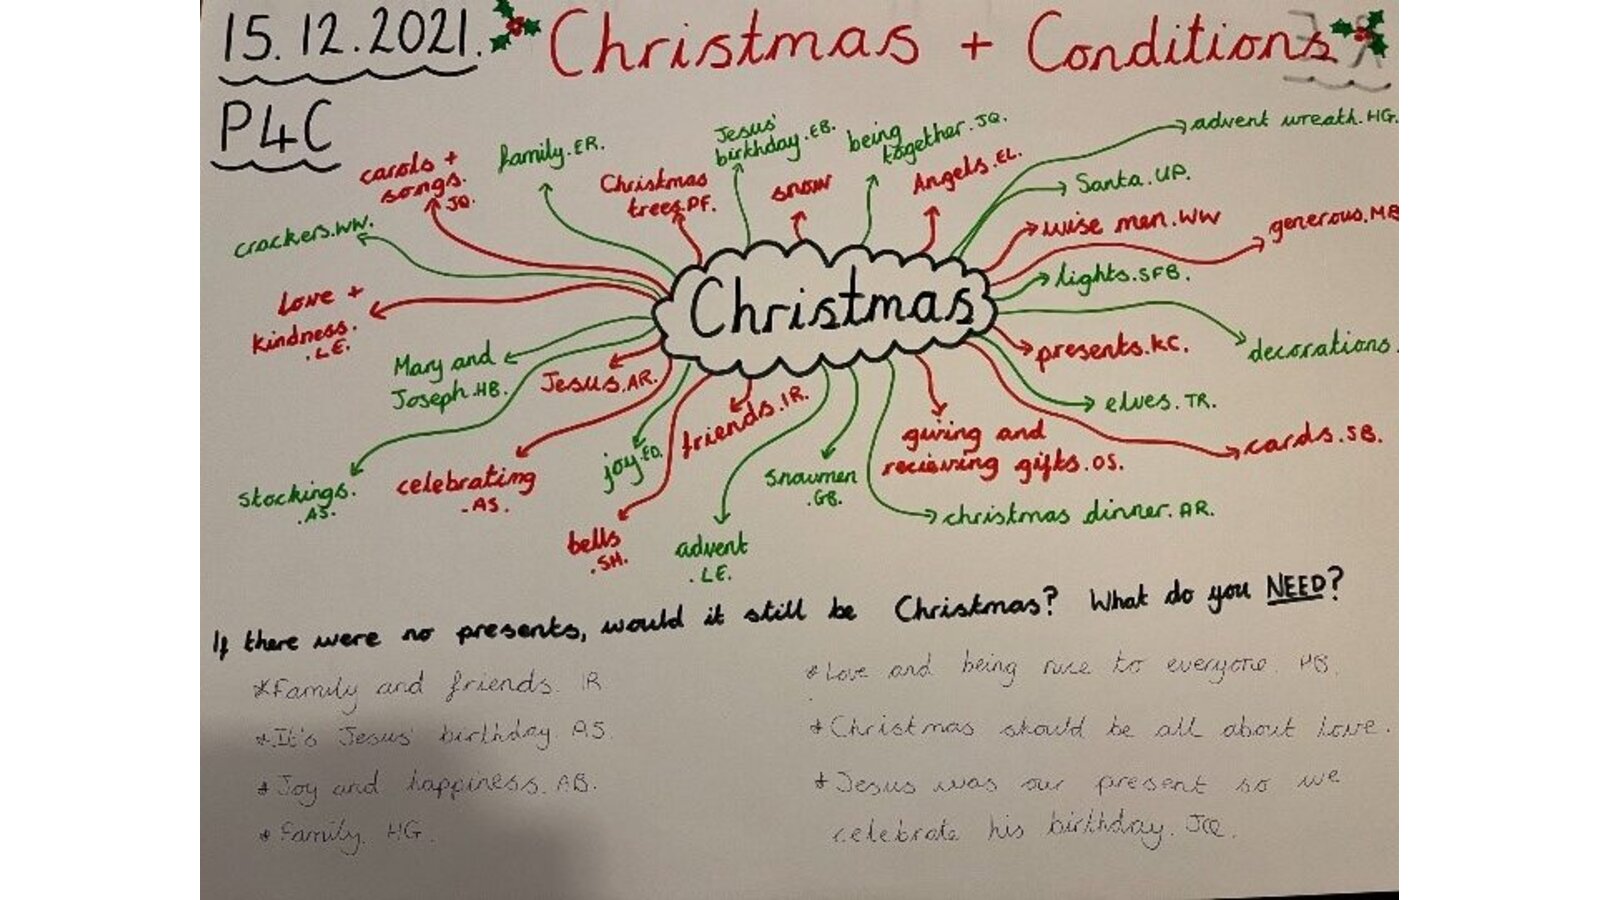 15.12.2021.
Christmas + Conditions
P4C
carols +
songs.
JQ.
family.ER.
Christmas
trees.PF.
Jesus'
birthday.EB.
snow
being
together.JQ.
Angels.EL.
advent wreath.HG.
Santa.UP.
wise men.WW
generous.MB
crackers.WW.
lights.SFB.
love +
kindness.
.LE.
Christmas
decorations.
presents.KC.
Mary and
Joseph.HB.
Jesus.AR.
friends.IR.
elves.TR.
cards.SB.
giving and
recieving gifts.OS.
joy.EO.
snowmen
.GB.
stockings.
.AS.
celebrating
.AS.
christmas dinner.AR.
bells
.SH.
advent
.LE.
If there were no presents, would it still be Christmas? What do you NEED?
*Family and friends. IR
*It's Jesus' birthday. AS.
*Joy and happiness. AB.
*Family. HG.
*Love and being nice to everyone. HB.
*Christmas should be all about love.
*Jesus was our present so we
celebrate his birthday. JQ.